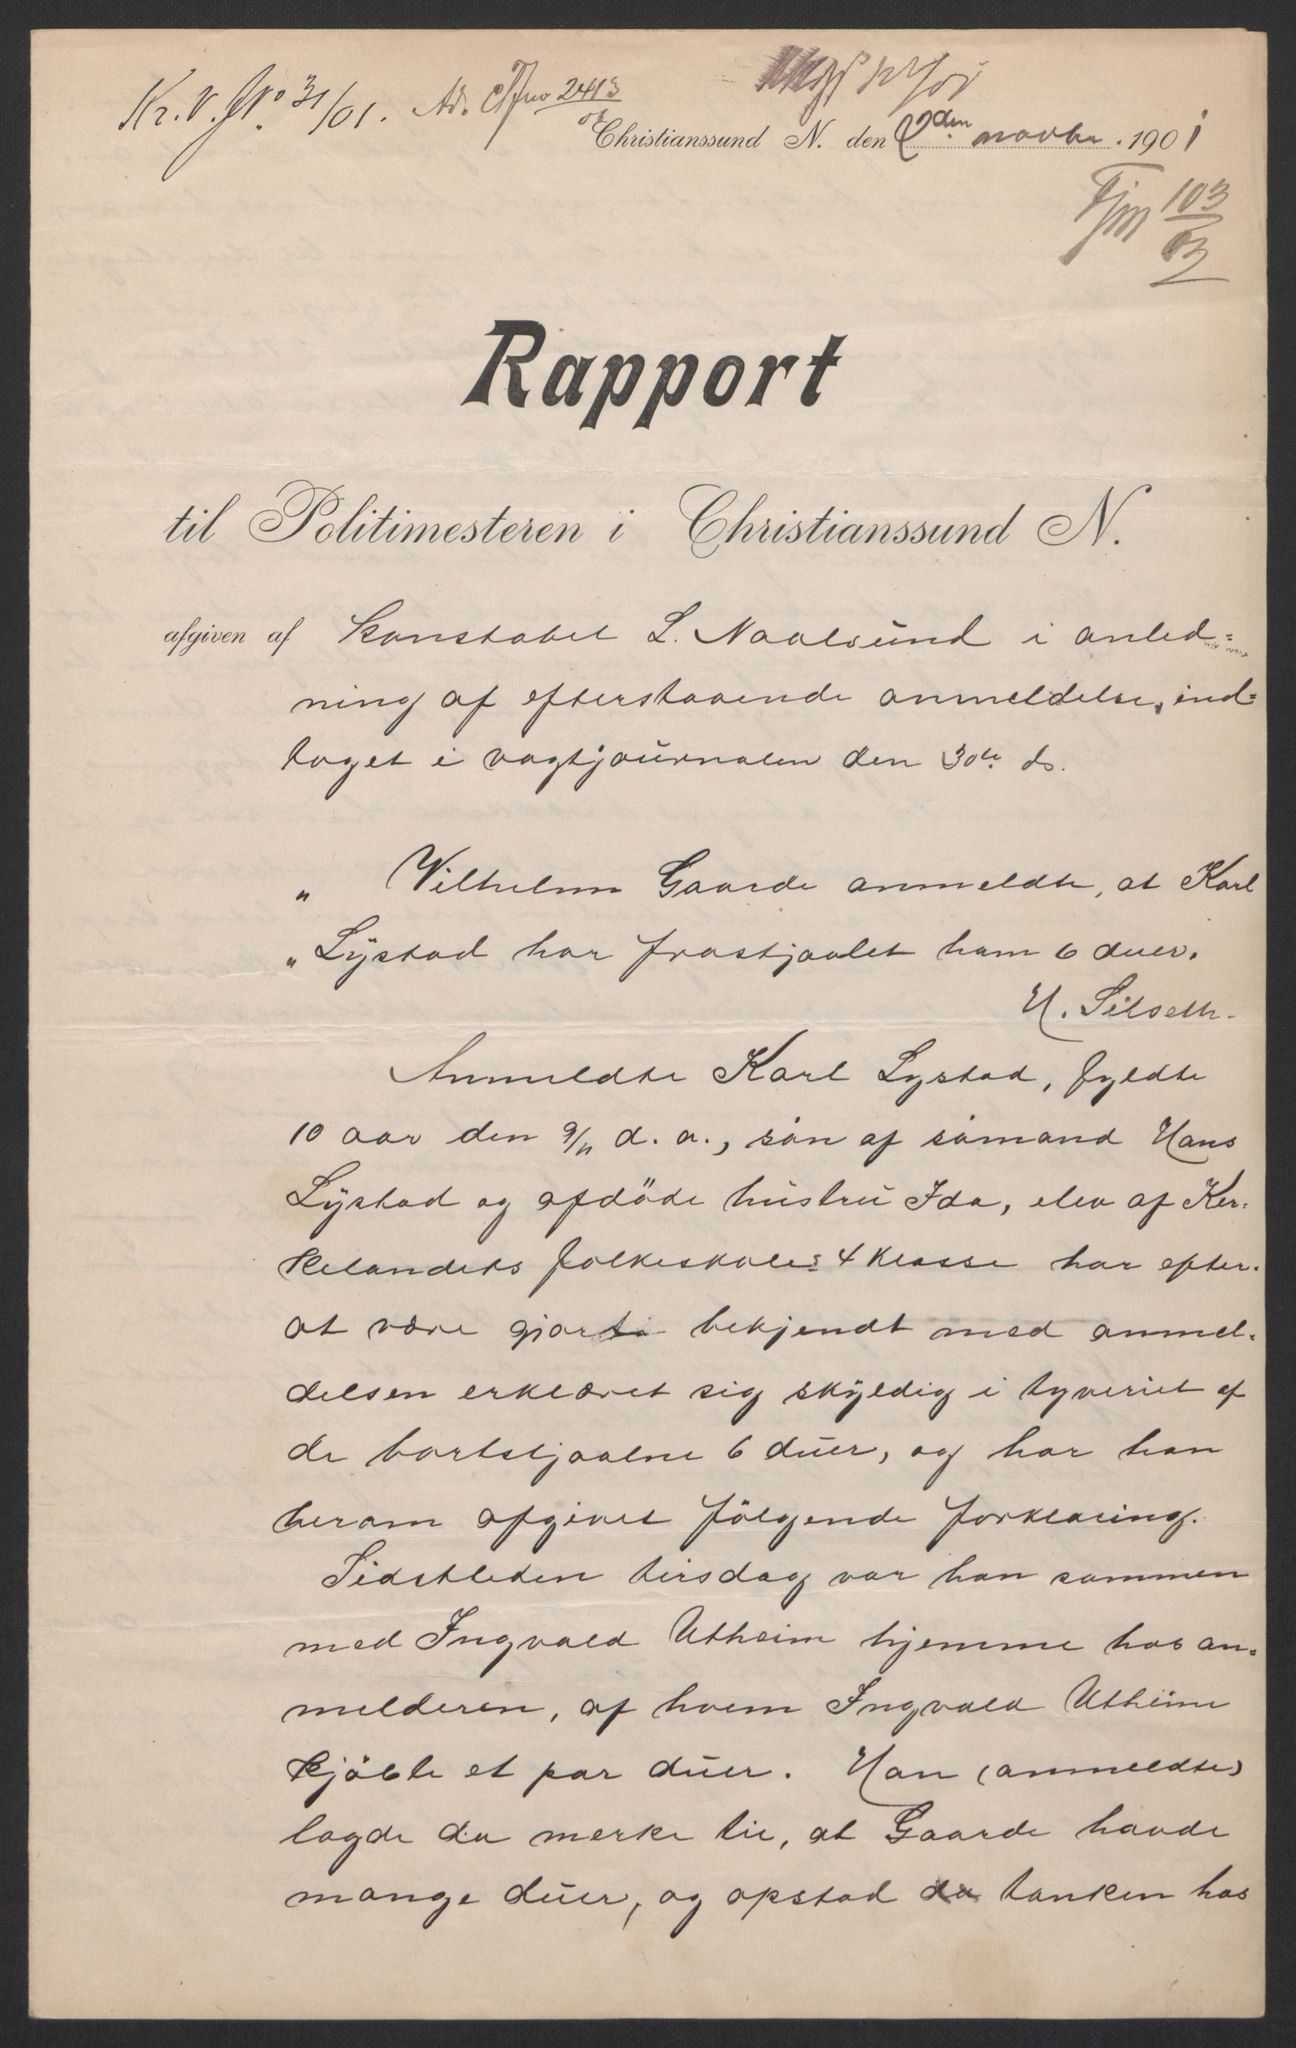 Kr. V. J. No 31/01. Ad. Tfno 2413/01
Christianssund N. den 2den novbr. 1901
Tjm 103/03
Rapport
til Politimesteren i Christianssund N.
afgiven af Konstabel L. Naalsund i anled-
ning af efterstaaende anmeldelse, ind-
taget i vagtjournalen den 30te ds.
" Vilhelm Gaarde anmeldte, at Karl
" Lystad har frastjaalet ham 6 duer.
H. Silseth.
Anmeldte Karl Lystad, fyldte
10 aar den 9/11 d. a., søn af sømand Hans
Lystad og afdøde hustru Ida, elev af Kir-
kelandets folkeskoles 4 klasse har efter
at være gjort bekjendt med anmel-
delsen erklæret sig skyldig i tyveriet af
de bortstjaalne 6 duer, og har han
herom afgivet følgende forklaring.
Sidstleden tirsdag var han sammen
med Ingvald Utheim hjemme hos an-
melderen, af hvem Ingvald Utheim
kjøbte et par duer. Han (anmeldte)
lagde da merke til, at Gaarde havde
mange duer, og opstod da tanken hos